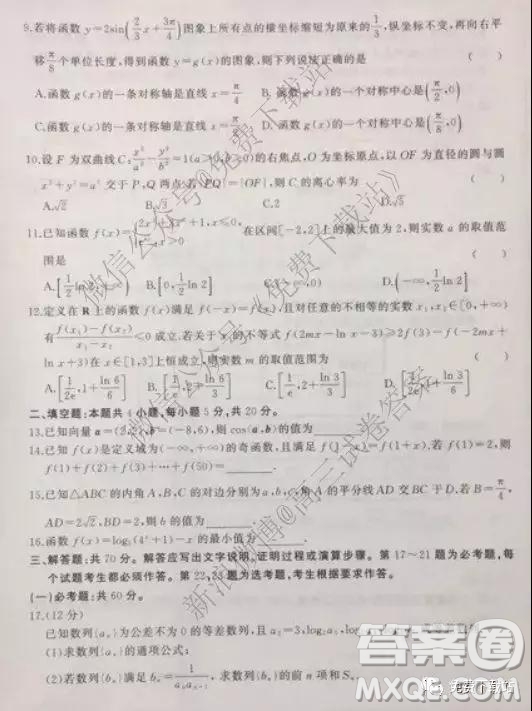 9.若将函数 y=2sin(2/3 x+3π/4)图象上所有点的横坐标缩短为原来的1/3,纵坐标不变,再向右平
移π/8个单位长度,得到函数 y=g(x)的图象,则下列说法正确的是 ( )
A.函数 g(x)的一条对称轴是直线 x=π/4 B.函数 g(x)的一个对称中心是(π/2,0)
C.函数 g(x)的一条对称轴是直线 x=π/2 D.函数 g(x)的一个对称中心是(π/8,0)
10.设 F 为双曲线 C: x²/a²-y²/b²=1(a>0,b>0)的右焦点,O 为坐标原点,以 OF 为直径的圆与圆
x²+y²=a² 交于 P,Q 两点.若|PQ|=|OF|,则 C 的离心率为 ( )
A.√2 B.√3 C.2 D.√5
11.已知函数 f(x)={2x³+3x²+1,x≤0,
x>0 在区间[-2,2]上的最大值为 2,则实数 a 的取值范
围是 ( )
A.[1/2 ln 2, B.[0,1/2 ln 2] C. 0] D.(-∞,1/2 ln 2]
12.定义在 R 上的函数 f(x)满足 f(-x)=f(x),且对任意的不相等的实数 x₁,x₂∈[0,+∞)
有 f(x₁)-f(x₂)/x₁-x₂ <0 成立,若关于 x 的不等式 f(2mx-ln x-3)≥2f(3)-f(-2mx+
ln x+3)在 x∈[1,3]上恒成立,则实数 m 的取值范围为 ( )
A.[1/2e,1+ln 6/6] B.[ ,1+ln 6/3] C.[1/e,2+ln 3/3] D.[1/2e,1+ln 3/6]
二、填空题:本题共 4 小题,每小题 5 分,共 20 分.
13.已知向量 a=(2,2),b=(-8,6),则 cos⟨a,b⟩的值为
14.已知 f(x)是定义域为(-∞,+∞)的奇函数,且满足 f(1-x)=f(1+x).若 f(1)=2,则
f(1)+f(2)+f(3)+…+f(50)=
15.已知△ABC 的内角 A,B,C 的对边分别为 a,b,c,角 A 的平分线 AD 交 BC 于 D.若 B=π/4,
AD=2√2,BD=2,则 b 的值为
16.函数 f(x)=log₃(4ˣ+1)-x 的最小值为
三、解答题:共 70 分。解答应写出文字说明、证明过程或演算步骤。第 17~21 题为必考题,每
个试题考生都必须作答。第 22,23题为选考题,考生根据要求作答。
(一)必考题:共 60 分。
17.(12 分)
已知数列{aₙ}为公差不为 0 的等差数列,且 a₂=3,log₂a₁,log₂a₃,
(1)求数列{aₙ}的通项公式;
(2)若数列{bₙ}满足 bₙ=1/aₙaₙ₊₁,求数列{bₙ}的前 n 项和 Sₙ.
微信公众号《免费下载站》
微信公众号《免费下载站》
新浪微博@高三试卷答案
答案圈
MXQE.COM
免费下载站